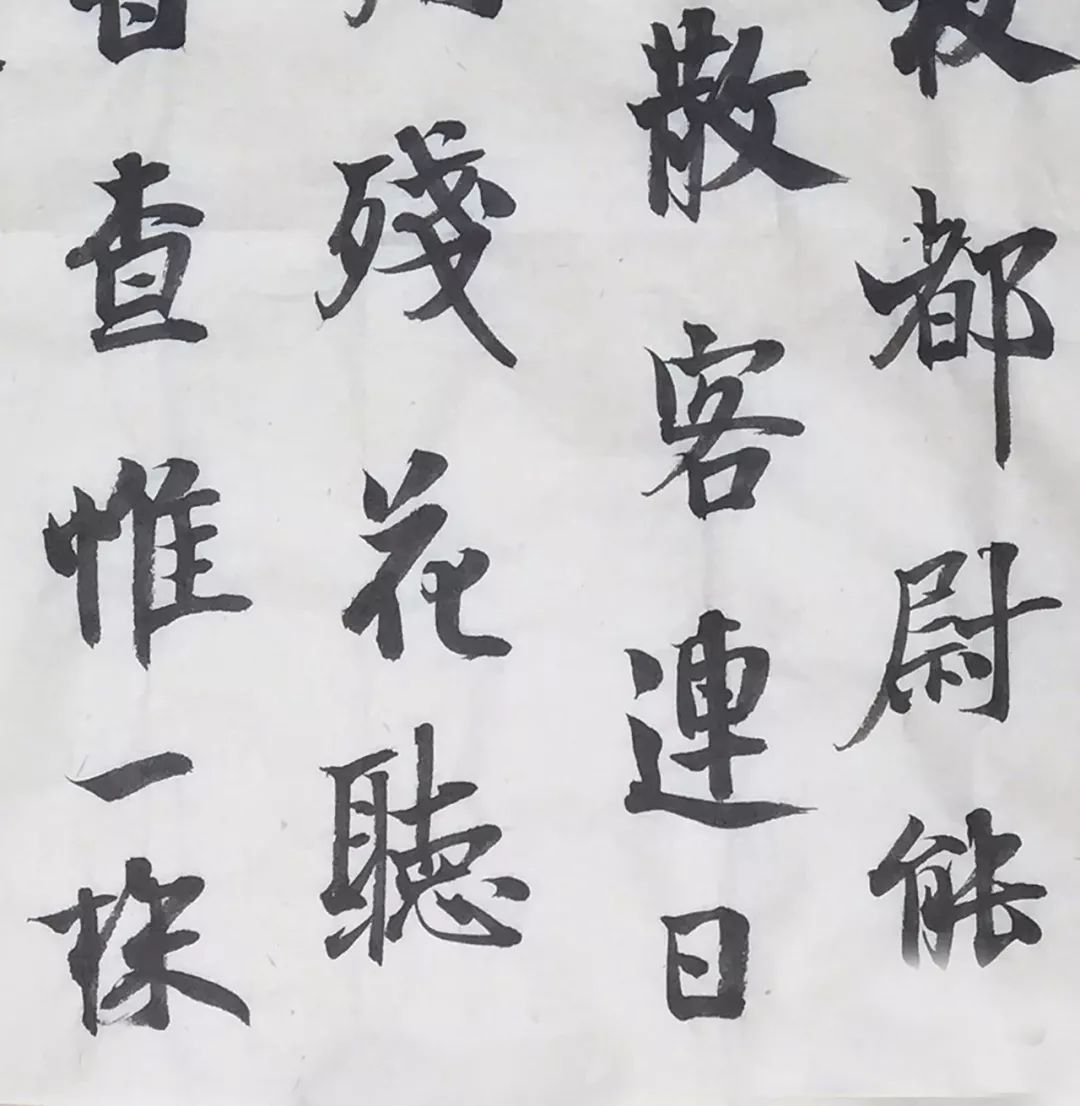 都尉能
散客連日
殘花聽
查惟一株